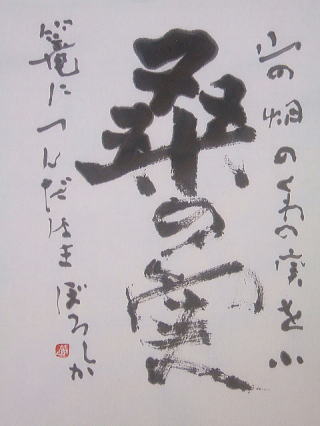 山の畑のくわの実を小
桑の実
籠につんだはまぼろしか